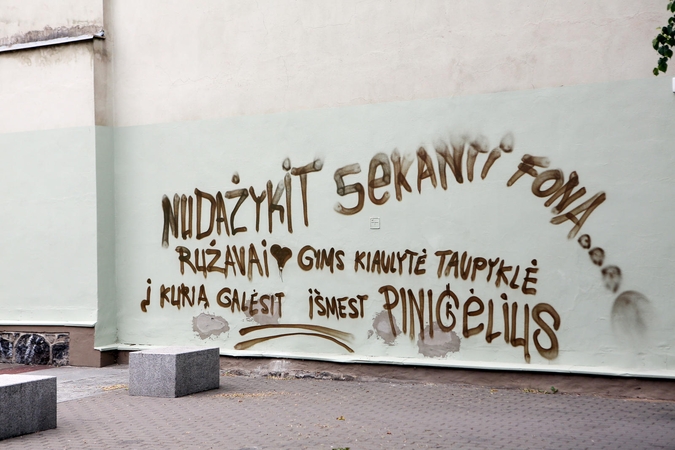 NUDAŻYKIT SEKANTI FONA...
RUŻAVAI GYMS KIAULYTĖ TAUPYKLĖ
Į KURIA GALĖSIT IŠMEST PINIGĖLIUS